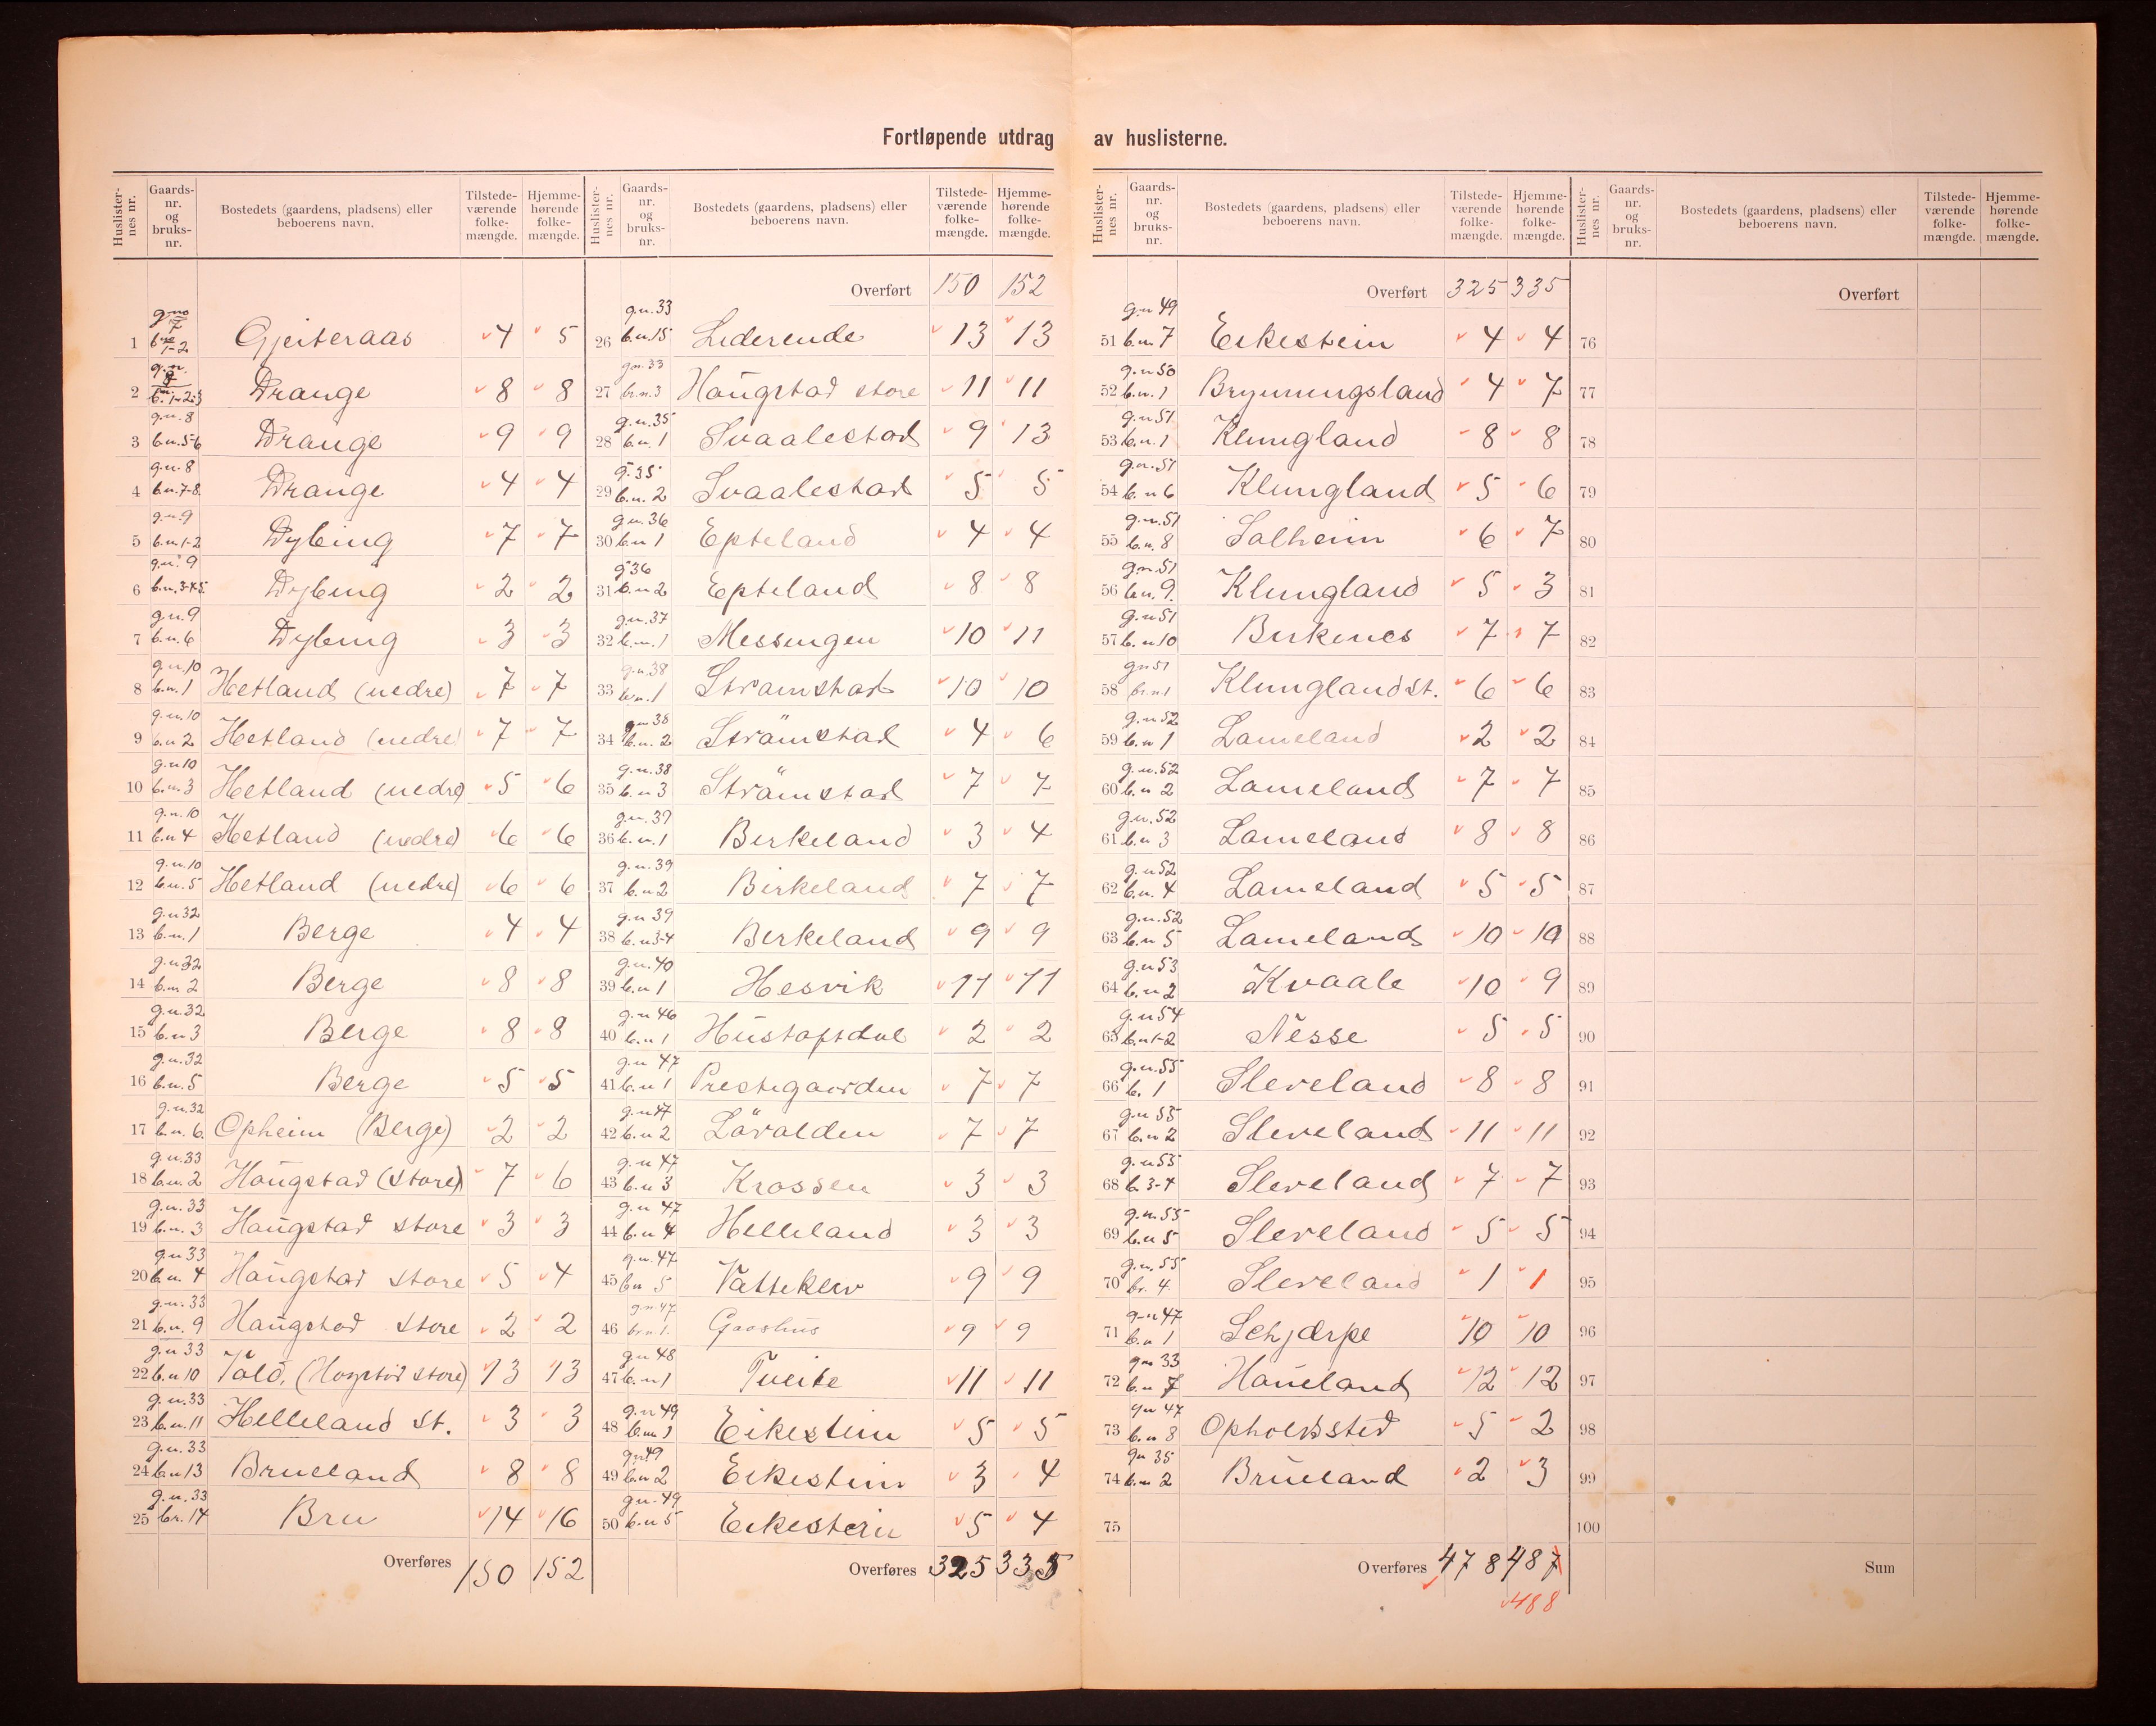 Fortløpende utdrag av huslisterne.
Huslister-nes nr. Gaards-nr. og bruks-nr. Bostedets (gaardens, pladsens) eller beboerens navn. Tilstede-værende folke-mængde. Hjemme-hørende folke-mængde.
1 g.no 7 b.no 1-2 Gjeiteraas 4 5
2 g.n. 8 b.n. 1-2-3 Drange 8 8
3 g.n. 8 b.n. 5-6 Drange 9 9
4 g.n. 8 b.n. 7-8. Drange 4 4
5 g.n. 9 b.n. 1-2 Dybing 7 7
6 g.n. 9 b.n. 3-4-5. Dybing 2 2
7 g.n. 9 b.n. 6 Dybing 3 3
8 g.n. 10 b.n. 1 Hetland (nedre) 7 7
9 g.n. 10 b.n 2 Hetland (nedre) 7 7
10 g.n 10 b.n. 3 Hetland (nedre) 5 6
11 g.n. 10 b.n 4 Hetland (nedre) 6 6
12 g.n. 10 b.n. 5 Hetland (nedre) 6 6
13 g.n 32 b.n. 1 Berge 4 4
14 g.n 32 b.n. 2 Berge 8 8
15 g.n. 32 b.n 3 Berge 8 8
16 g.n. 32 b.n. 5 Berge 5 5
17 g.n. 32 b.n. 6. Opheim (Berge) 2 2
18 g.n. 33 b.n. 2 Haugstad (store) 7 6
19 g.n. 33 b.n. 3 Haugstad store 3 3
20 g.n 33 b.n. 4 Haugstad store 5 4
21 g.n. 33 b.n. 9 Haugstad store 2 2
22 g.n 33 b.n 10 (Hogstad store) 13 13
23 g.n. 33 b.n. 11 Helleland St. 3 3
24 g.n. 33 b.n 13 Brueland 8 8
25 g.n. 33 br. 14 Bru 14 16
Overføres 150 152
Huslister-nes nr. Gaards-nr. og bruks-nr. Bostedets (gaardens, pladsens) eller beboerens navn. Tilstede-værende folke-mængde. Hjemme-hørende folke-mængde.
Overført 150 152
26 g.n. 33 b.n. 15 Liderende 13 13
27 gn. 33 br.n. 3 Haugstad store 11 11
28 g.n. 35 b.n. 1 Svaalestad 9 13
29 g. 35 b.n. 2 Svaalestad 5 5
30 g.n. 36 b.n 1 Epteland 4 4
31 g 36 b.n 2 Epteland 8 8
32 g.n. 37 b.n. 1 Messingen 10 11
33 g.n. 38 b.n. 1 Strømstad 10 10
34 g.n 38 b.n. 2 Strämstad 4 6
35 g.n. 38 b.n 3 Strämstad 7 7
36 g.n. 39 b.n. 1 Birkeland 3 4
37 g.n. 39 b.n 2 Birkeland 7 7
38 g.n 39 b.n 3-4 Birkeland 9 9
39 g.n. 40 b.n 1 Hesvik 11 11
40 g.n 46 b.n 1 Hustoftdal 2 2
41 g.n 47 b.n 1 Prestegaarden 7 7
42 g.n 47 b.n 2 Lävolden 7 7
43 g.n 47 b.n 3 Krossen 3 3
44 g.n 47 b.n 4 Helleland 3 3
45 g.n. 47 b.n 5 Vatteklev 9 9
46 g.n. 47 br.n 1. Gaashus 9 9
47 g.n 48 b.n 1 Tveite 11 11
48 g.n 49 b.n 1 Eikestein 5 5
49 g.n 49 b.n 2 Eikestein 3 4
50 g.n. 49 b.n 5 Eikestein 5 4
Overføres 325 335
Huslister-nes nr. Gaards-nr. og bruks-nr. Bostedets (gaardens, pladsens) eller beboerens navn. Tilstede-værende folke-mængde. Hjemme-hørende folke-mængde.
Overført 325 335
51 g.n 49 b.n. 7 Eikestein 4 4
52 g.n 50 b.n. 1 Brynningsland 4 7
53 g.n 51 b.n. 1 Klungland 8 8
54 g.n. 51 b.n 6 Klungland 5 6
55 g.n. 51 b.n. 8 Solheim 6 7
56 g.n. 51 b.n. 9. Klungland 5 3
57 g.n 51 b.n 10 Birkenes 7 7
58 gn 51 br.n 1 Klungland st. 6 6
59 g.n 52 b.n 1 Lameland 2 2
60 g.n. 52 b.n 2 Lameland 7 7
61 g.n. 52 b.n 3 Lameland 8 8
62 g.n 52 b.n. 4 Lameland 5 5
63 g.n. 52 b.n 5 Lameland 10 10
64 g.n 53 b.n 2 Kvaale 10 9
65 g.n 54 b.n 1-2 Nesse 5 5
66 g.n. 55 b. 1 Sleveland 8 8
67 g.n 55 b.n 2 Sleveland 11 11
68 g.n 55 b. 3-4 Sleveland 7 7
69 g.n. 55 b.n 5 Sleveland 5 5
70 g.n. 55 br. 4. Sleveland 1 1
71 g.n 47 b.n 1 Schjærpe 10 10
72 gn 33 b.n 7 Haueland 12 12
73 gn 47 b.n 8 Opholdssted 5 2
74 gn 35 b.n 2 Brueland 2 3
75
Overføres 478 487
488
Huslister-nes nr. Gaards-nr. og bruks-nr. Bostedets (gaardens, pladsens) eller beboerens navn. Tilstede-værende folke-mængde. Hjemme-hørende folke-mængde.
Overført
76
77
78
79
80
81
82
83
84
85
86
87
88
89
90
91
92
93
94
95
96
97
98
99
100
Sum